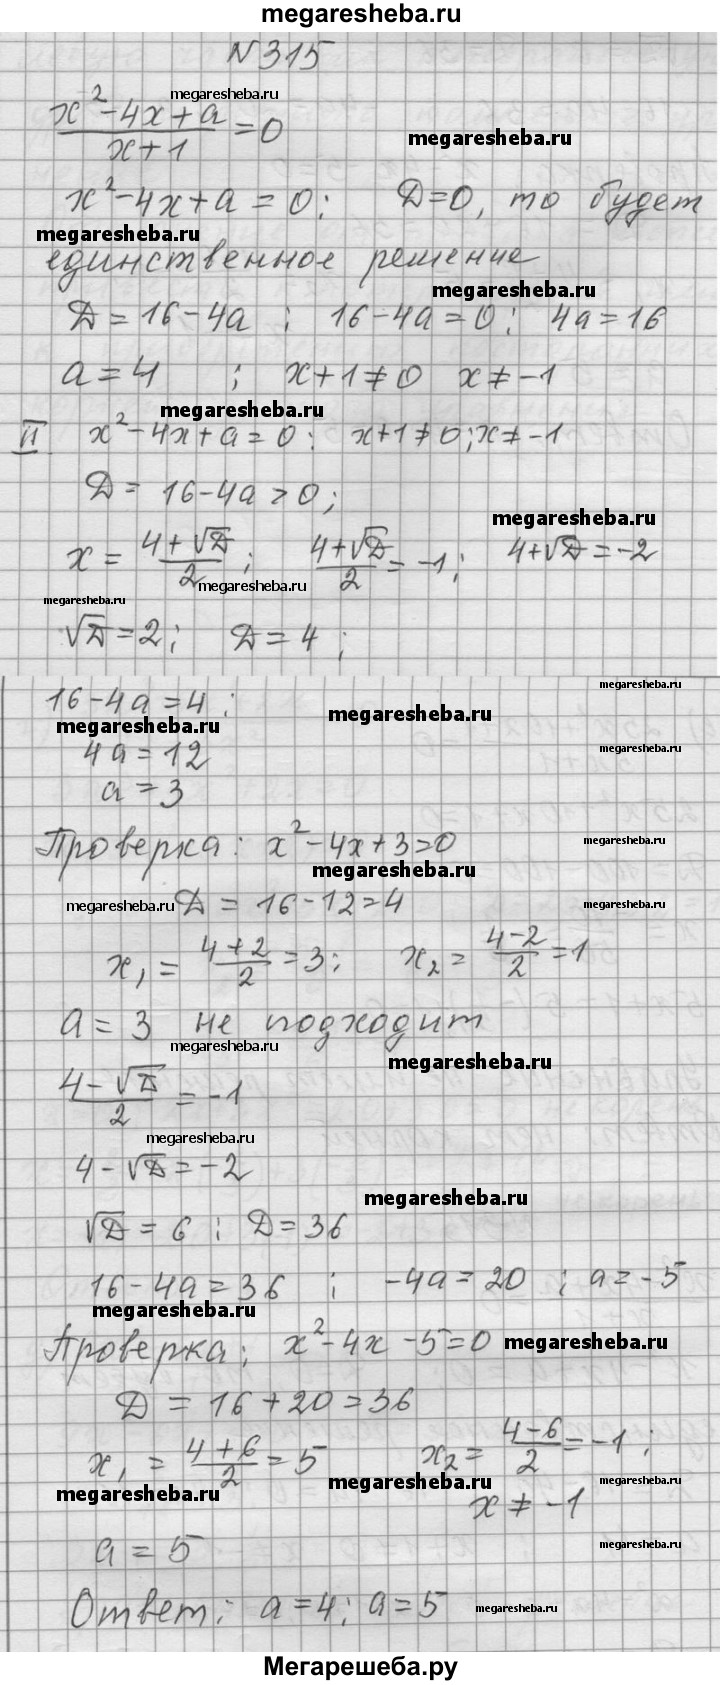 megaresheba.ru
N 315
megaresheba.ru
(x² - 4x + a)/(x + 1) = 0
megaresheba.ru
x² - 4x + a = 0; Д = 0, то будет
megaresheba.ru
единственное решение
megaresheba.ru
Д = 16 - 4a ; 16 - 4a = 0; 4a = 16
a = 4 ; x + 1 ≠ 0 x ≠ -1
megaresheba.ru
II x² - 4x + a = 0; x + 1 ≠ 0; x ≠ -1
Д = 16 - 4a > 0;
megaresheba.ru
x = (4 + √Д)/2; (4 + √Д)/2 = -1; 4 + √Д = -2
megaresheba.ru
megaresheba.ru
√Д = 2; Д = 4;
megaresheba.ru
16 - 4a = 4;
megaresheba.ru
megaresheba.ru
4a = 12
megaresheba.ru
a = 3
Проверка: x² - 4x + 3 = 0
megaresheba.ru
megaresheba.ru
megaresheba.ru
Д = 16 - 12 = 4
megaresheba.ru
x₁ = (4 + 2)/2 = 3; x₂ = (4 - 2)/2 = 1
a = 3 не подходит
megaresheba.ru
megaresheba.ru
(4 - √Д)/2 = -1
megaresheba.ru
4 - √Д = -2
megaresheba.ru
√Д = 6; Д = 36
16 - 4a = 36 ; -4a = 20 ; a = -5
megaresheba.ru
Проверка; x² - 4x - 5 = 0
megaresheba.ru
Д = 16 + 20 = 36
x₁ = (4 + 6)/2 = 5 x₂ = (4 - 6)/2 = -1;
megaresheba.ru
megaresheba.ru
megaresheba.ru
x ≠ -1
a = 5
megaresheba.ru
Ответ; a = 4; a = 5
megaresheba.ru
Мегарешеба.ру